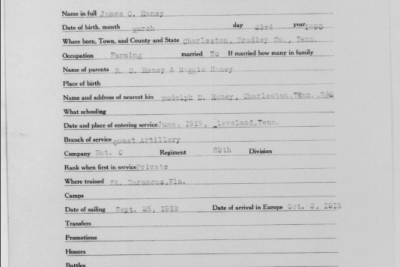 Name in full James O. Haney
Date of birth, month March day 23rd year
Where born, Town, and County and State Charleston, Bradley Co., Tenn.
Occupation Farming married No If married how many in family
Name of parents Haney & Maggie Haney
Place of birth
Name and address of nearest kin Haney, Charleston, Tenn.
What schooling
Date and place of entering service June, 1918, Cleveland, Tenn.
Branch of service Coast Artillery
Company Bat. C Regiment Division
Rank when first in service Private
Where trained Fla.
Camps
Date of sailing Sept. 25, 1918 Date of arrival in Europe Oct. 1918
Transfers
Promotions
Honors
Battles